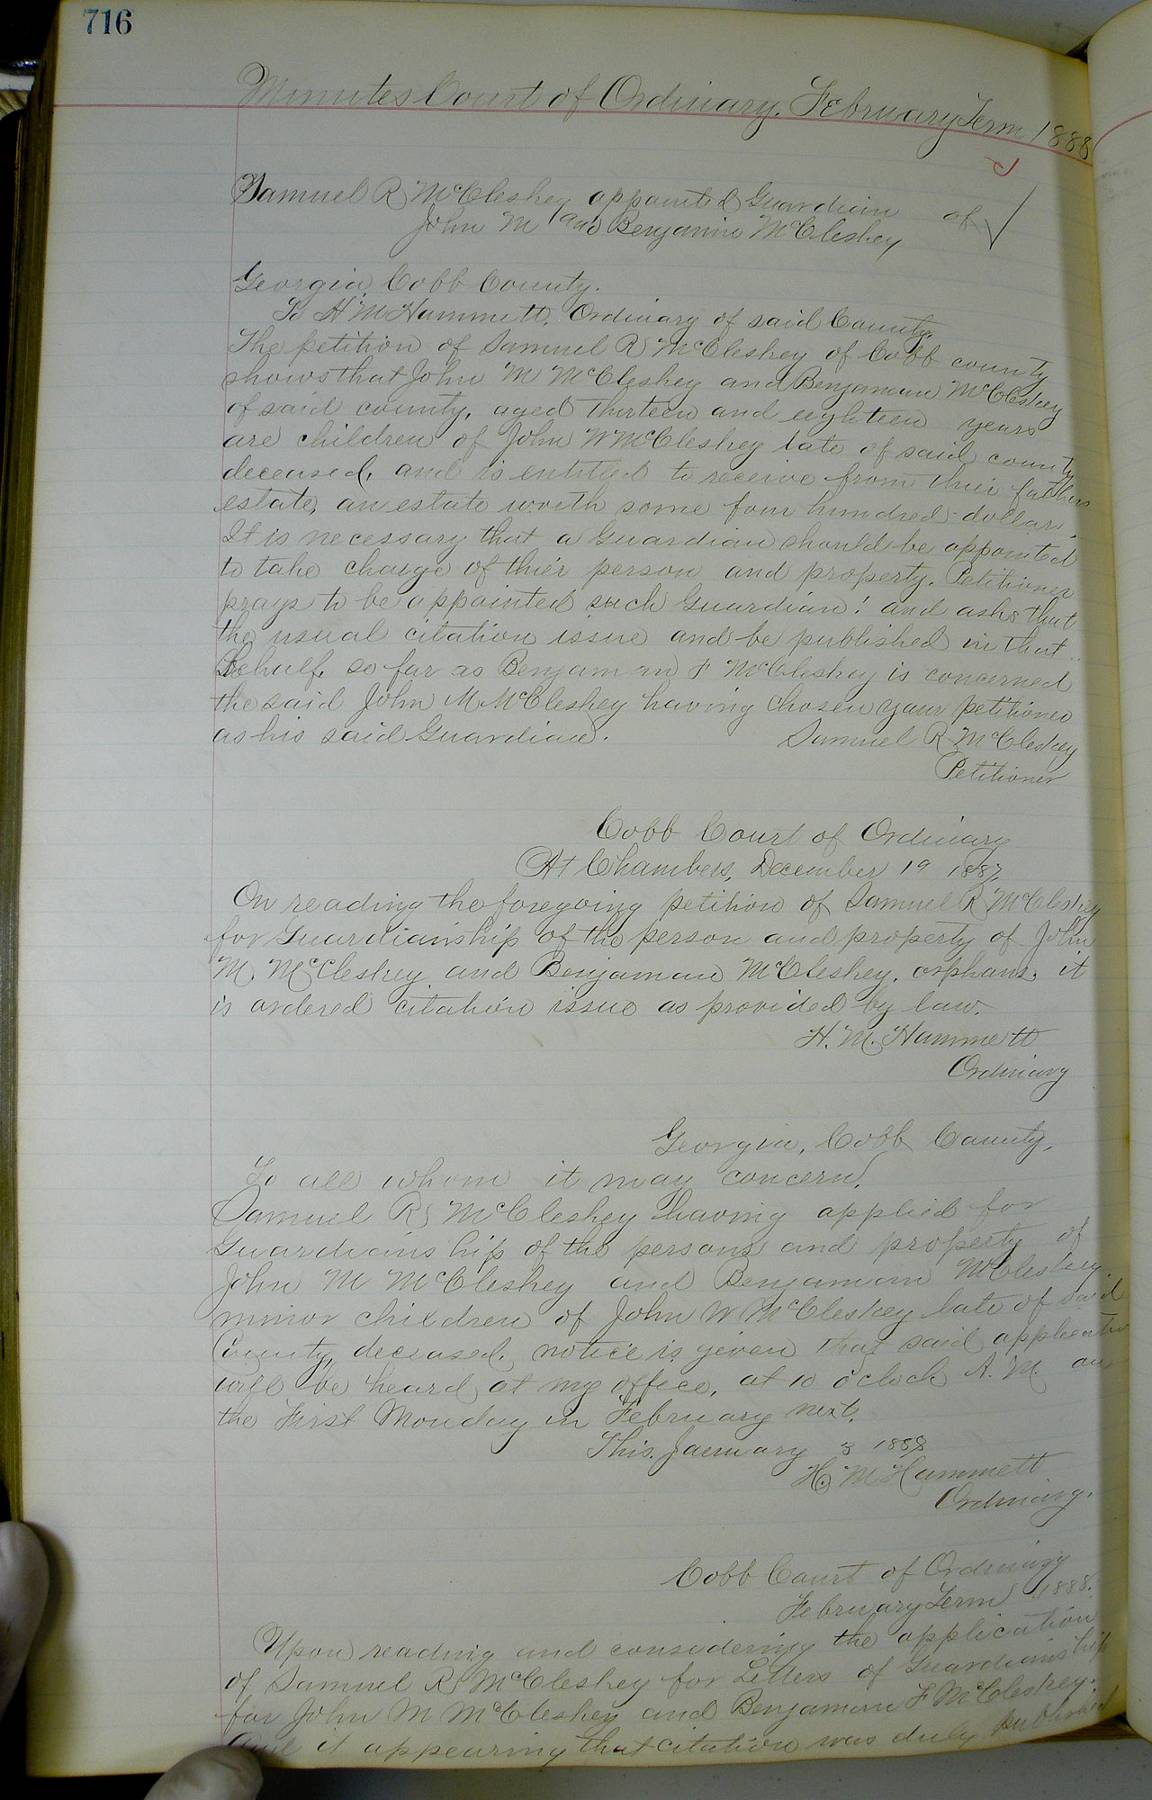 716
Minutes Court of Ordinary, February Term 1888
Samuel R McCleskey appointed Guardian of
John M and Benjamin McCleskey
Georgia, Cobb County.
To H M Hammett, Ordinary of said County,
The petition of Samuel R McCleskey of Cobb county
shows that John M McCleskey and Benjaman McCleskey
of said county, aged thirteen and eighteen years
are children of John W McCleskey late of said county
deceased, and is entitled to receive from thier fathers
estate, an estate worth some four hundred dollars
It is necessary that a Guardian should be appointed
to take charge of thier person and property. Petitioner
prays to be appointed such Guardian! and asks that
the usual citation issue and be published in that
Behalf, so far as Benjaman F McCleskey is concerned
the said John M McCleskey having chosen your petitioner
as his said Guardian.
Samuel R McCleskey
Petitioner
Cobb Court of Ordinary
At Chambers, December 19 1887,
On reading the foregoing petition of Samuel R McCleskey
for Guardianship of the person and property of John
M. McCleskey and Benjaman McCleskey, orphans, it
is ordered citation issue as provided by law.
H. M. Hammett
Ordinary
Georgia, Cobb County,
To all whom it may concern,
Samuel R McCleskey having applied for
Guardianship of the persons and property of
John M McCleskey and Benjaman McCleskey
minor children of John W McCleskey late of said
County, deceased, notice is given that said application
will be heard at my office, at 10 o'clock A. M. on
the First Monday in February next,
This, January 3 1888
H. M Hammett
Ordinary.
Cobb Court of Ordinary
February Term 1888.
Upon reading and considering the application
of Samuel R McCleskey for Letters of Guardianship
for John M McCleskey and Benjaman F McCleskey.
and it appearing that citation was duly published